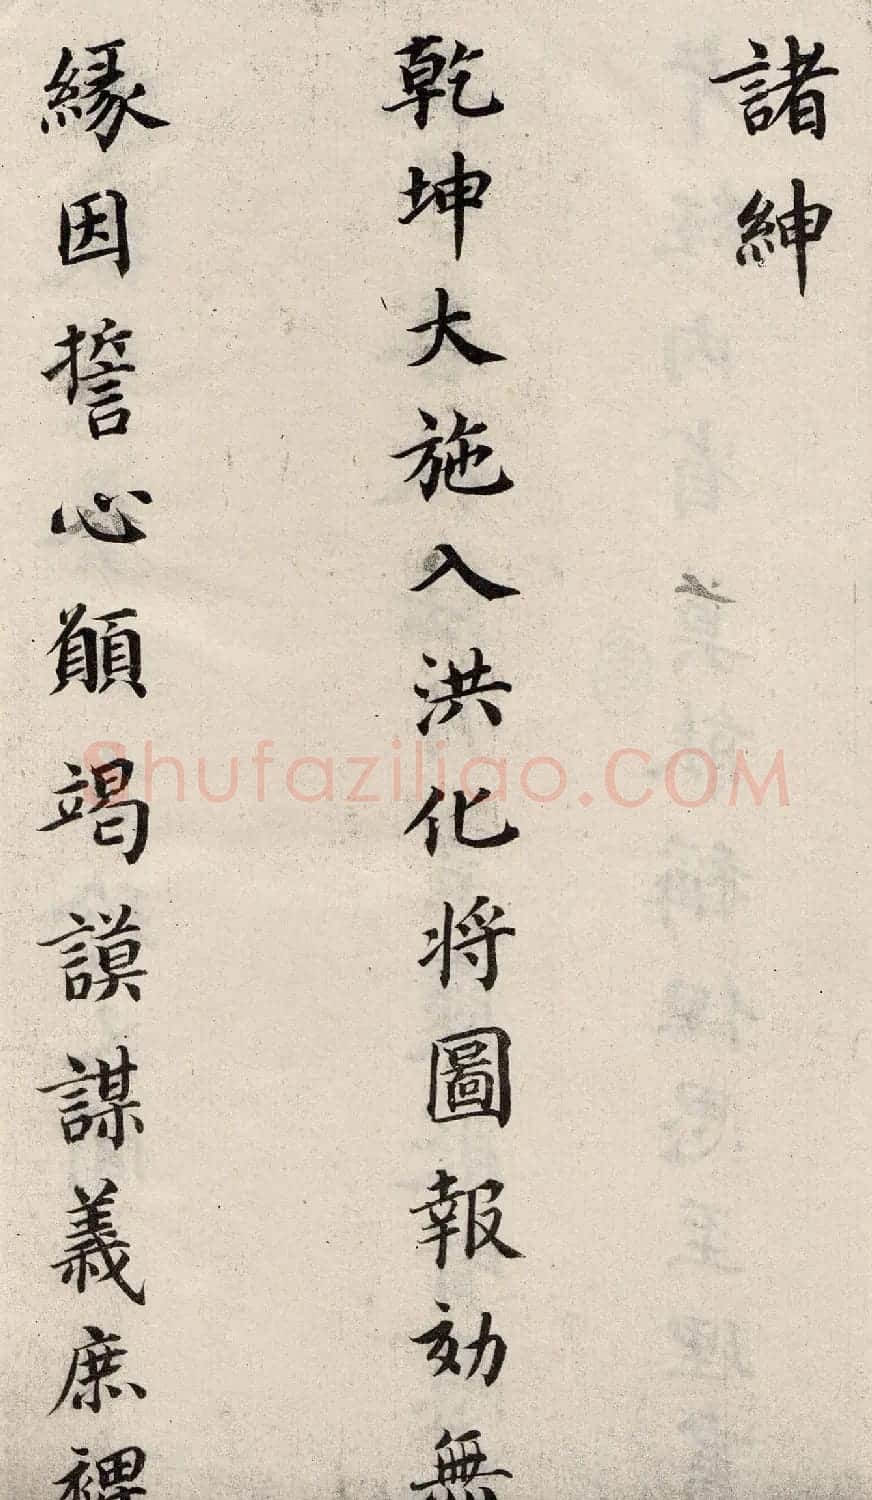 諸紳
乾坤大施入洪化將圖報効無
緣因誓心願竭謨謀義庶裨
Shufaziliao.COM